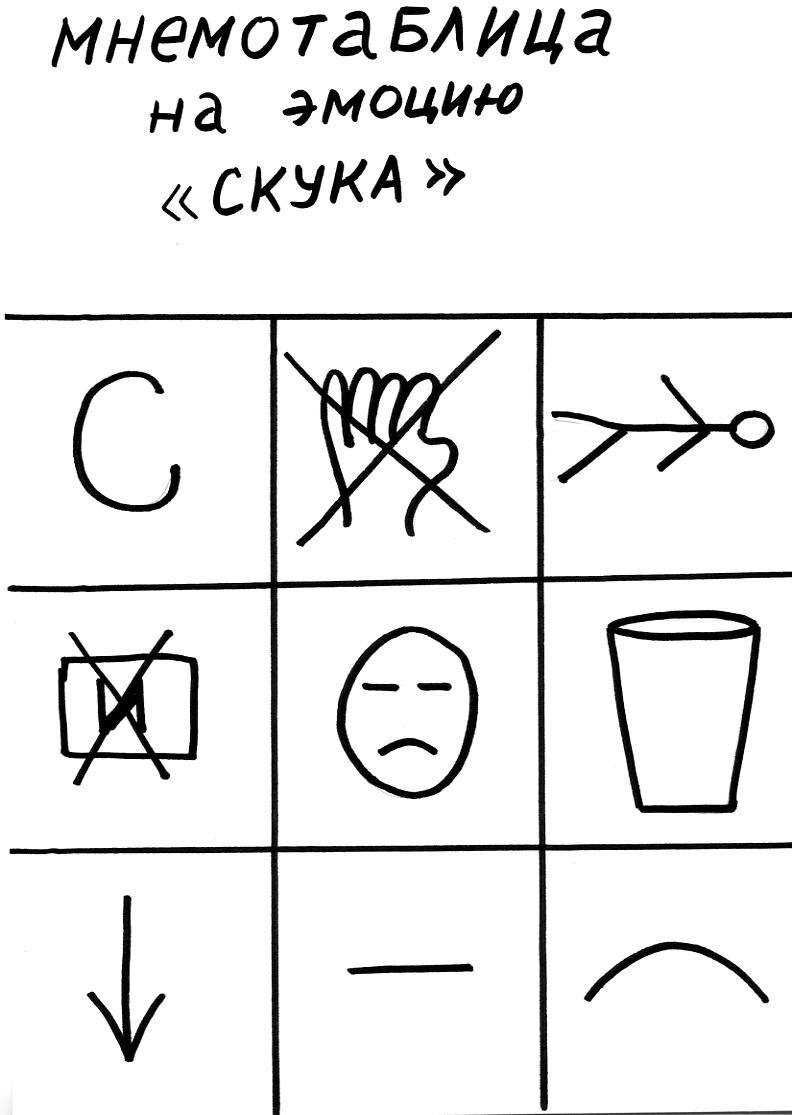 мнемотаблица
на эмоцию
«СКУКА»
С
И